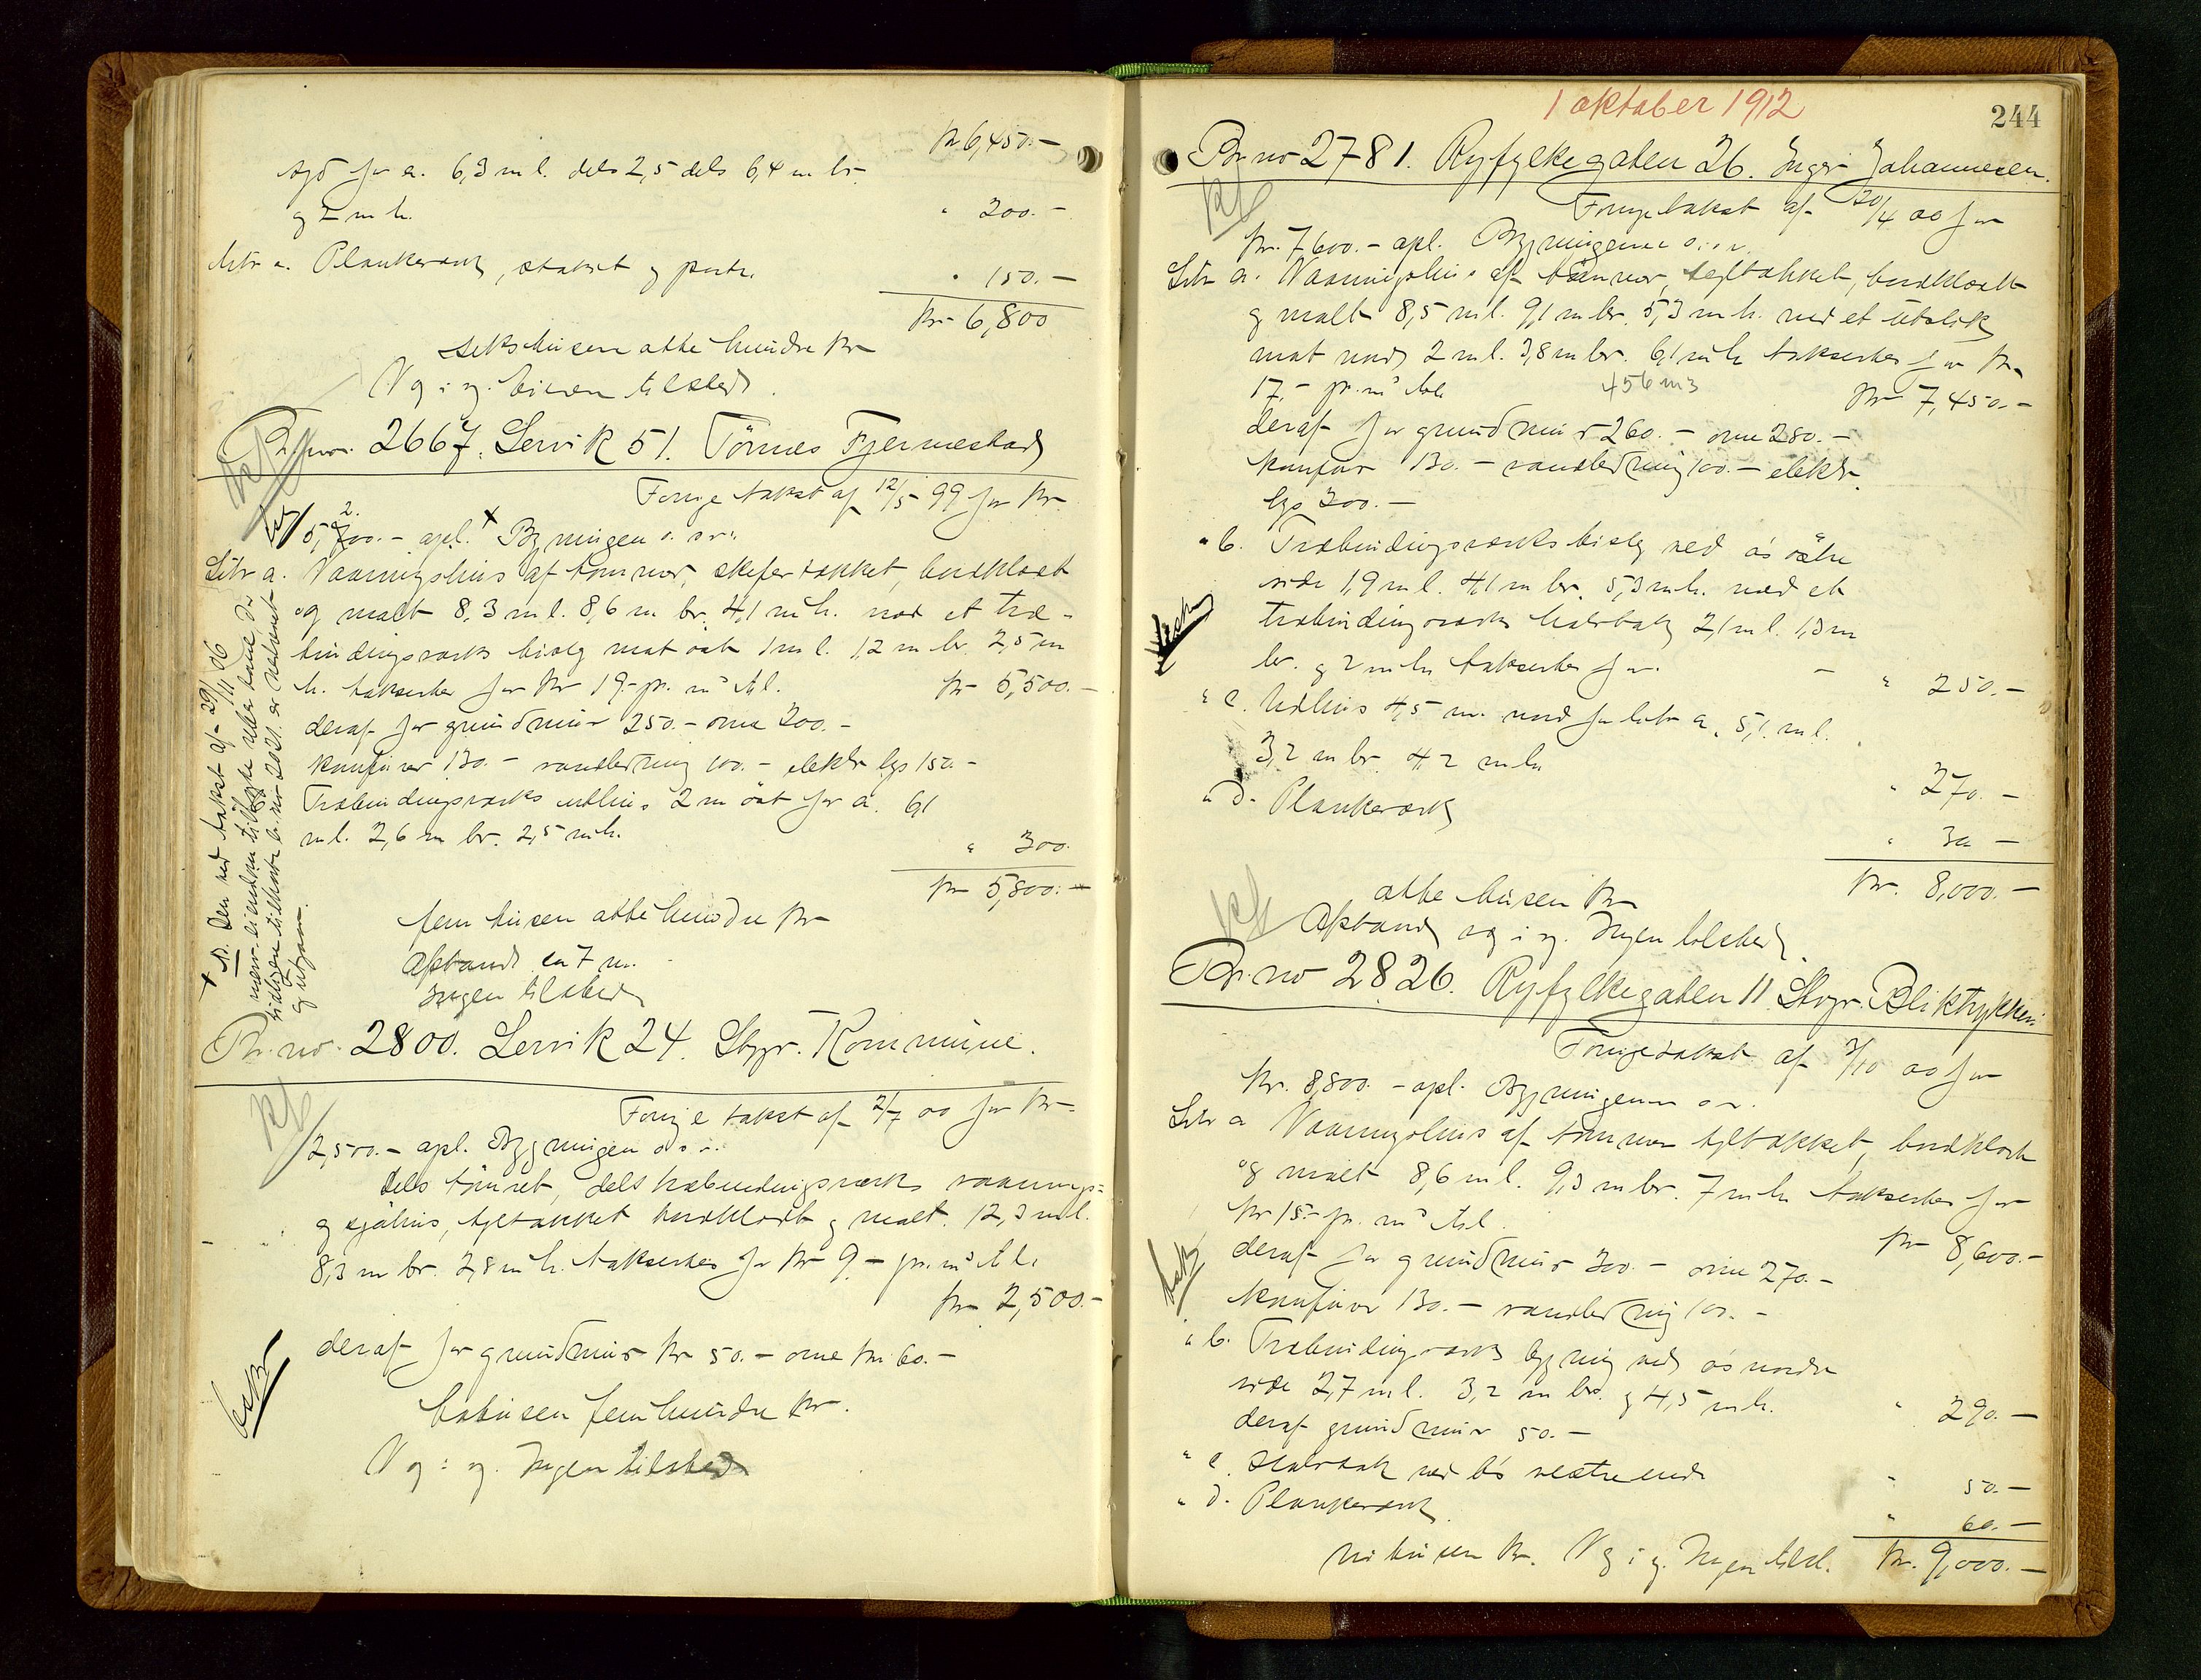 kr 6,450.-
syd for a. 6,3 m l. dels 2,5 dels 6,4 m br.
og 2 m h. " 200.-
Litr e. Plankeværk, stakit og port. " 150.-
kr 6,800
sekstusen otte hundre kr
V og i g. Eieren tilsted.
Br.no. 2667. Lervik 51. Tönnes Fjermestad
Forrige takst af 12/5 99 for kr
5,200.- opl. x Bygningen o. s v:
Litr a. Vaaningshus af tømmer, skifertækket, bordklædt
og malt 8,3 m l. 8,6 m br. 4,1 m h. med et træ-
bindingsværks bislag mot öst 1 m l. 1,2 m br. 2,5 m
h. takseres for kr 19.- pr. m³ til. kr 5,500.-
deraf for grundmur 250.- ovne 200.-
komfurer 130.- vandledning 100.- elektr lys 150.-
Træbindingsværks udhus 2 m öst for a. 6,1
m l. 2,6 m br. 2,5 m h. " 300.
kr 5,800.-
fem tusen otte hundre kr
Afstand ca 7 m.
Ingen tilsted
x N. Den ved takst af 29/11 06
Br.no. 2800. Lervik 24. Stvgr. Kommune.
Forrige takst af 2/7 00 for kr
2,500.- opl. Bygningen o s v:
dels tömret, dels træbindingsværks vaanings-
og sjöhus, tegltækket bordklædt og malt. 12,3 m l.
8,3 m br. 2,8 m h. takseres for kr 9.- pr. m³ til.
kr 2,500.-
deraf for grundmur kr 50.- ovne kr. 60.-
totusen femhundre kr.
V og i g. Ingen tilsted
1 oktober 1912
244
Br.no 2781. Ryfylkegaten 26. Inger Johannesen.
Forrige takst af 20/4 00 for
kr. 7600.- opl. Bygningerne o. s. v.
Litr a. Vaaningshus af tømmer, tegltækket, bordklædt
og malt 8,5 m l. 9,1 m br. 5,3 m h. med et utstik
mot nord 2 m l. 3,8 m br. 6,1 m h takseres for kr
17.- pr. m³ til 456 m3 kr 7,450.-
deraf for grundmur 260.- ovne 280.-
komfur 130.- vandledning 100.- elektr.
lys 200.-
" b. Træbindingsværks bislag ved a's östre
side 1,9 m l. 4,1 m br. 5,3 m h. med et
træbindingsværks halvtak 2,1 m l. 1,3 m
br. og 2 m h takseres for. " 250.-
" c. Udhus 4,5 m. nord for litr a, 5,1 m l.
3,2 m br. 4,2 m h " 270.-
" d. Plankeværk " 30 -
kr. 8,000.-
otte tusen kr
Afstand og i g. Ingen tilsted
Br.no 2826. Ryfylkegaten 11 Stvgr. Bliktrykkeri
Forrige takst af 3/10 00 for
kr. 8,800.- opl. Bygningerne o s v.
Litr a Vaaningshus af tømmer tegltækket, bordklædt
og malt 8,6 m l. 9,3 m br. 7 m h takseres for
kr 15.- pr. m³ til. kr 8,600.-
deraf for grundmur 300.- ovne 270.-
komfurer 130.- vandledning 100.-
" b. Træbindingsværks bygning ved a's nordre
side 2,7 m l. 3,2 m br. og 4,5 m h. " 290.-
deraf grundmur 50.-
" c. Halvtak ved b's vestre ende " 50.-
" d. Plankeværk " 60.-
ni tusen kr. V og i g. Ingen tilst. kr. 9,000.-